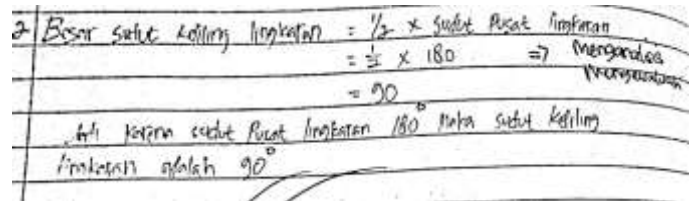 2 Besar sudut keliling lingkaran = 1/2 x sudut Pusat lingkaran
= 1/2 x 180 => Menganalisa
= 90
Jadi karena sudut Pusat lingkaran 180° Maka sudut keliling
lingkaran adalah 90°